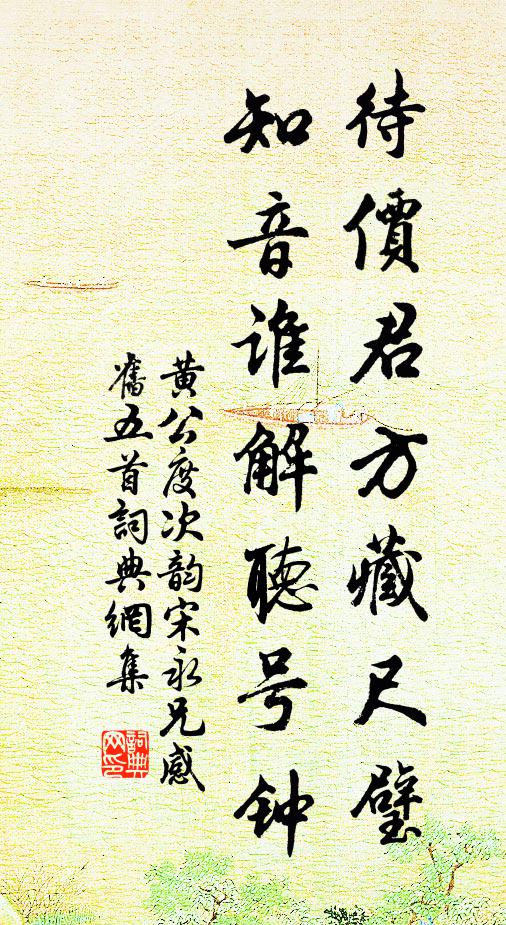 待價君方藏尺璧
知音誰解聽号钟
黃公度次韵宋永兄感
舊五首詞典網集
詞典网印